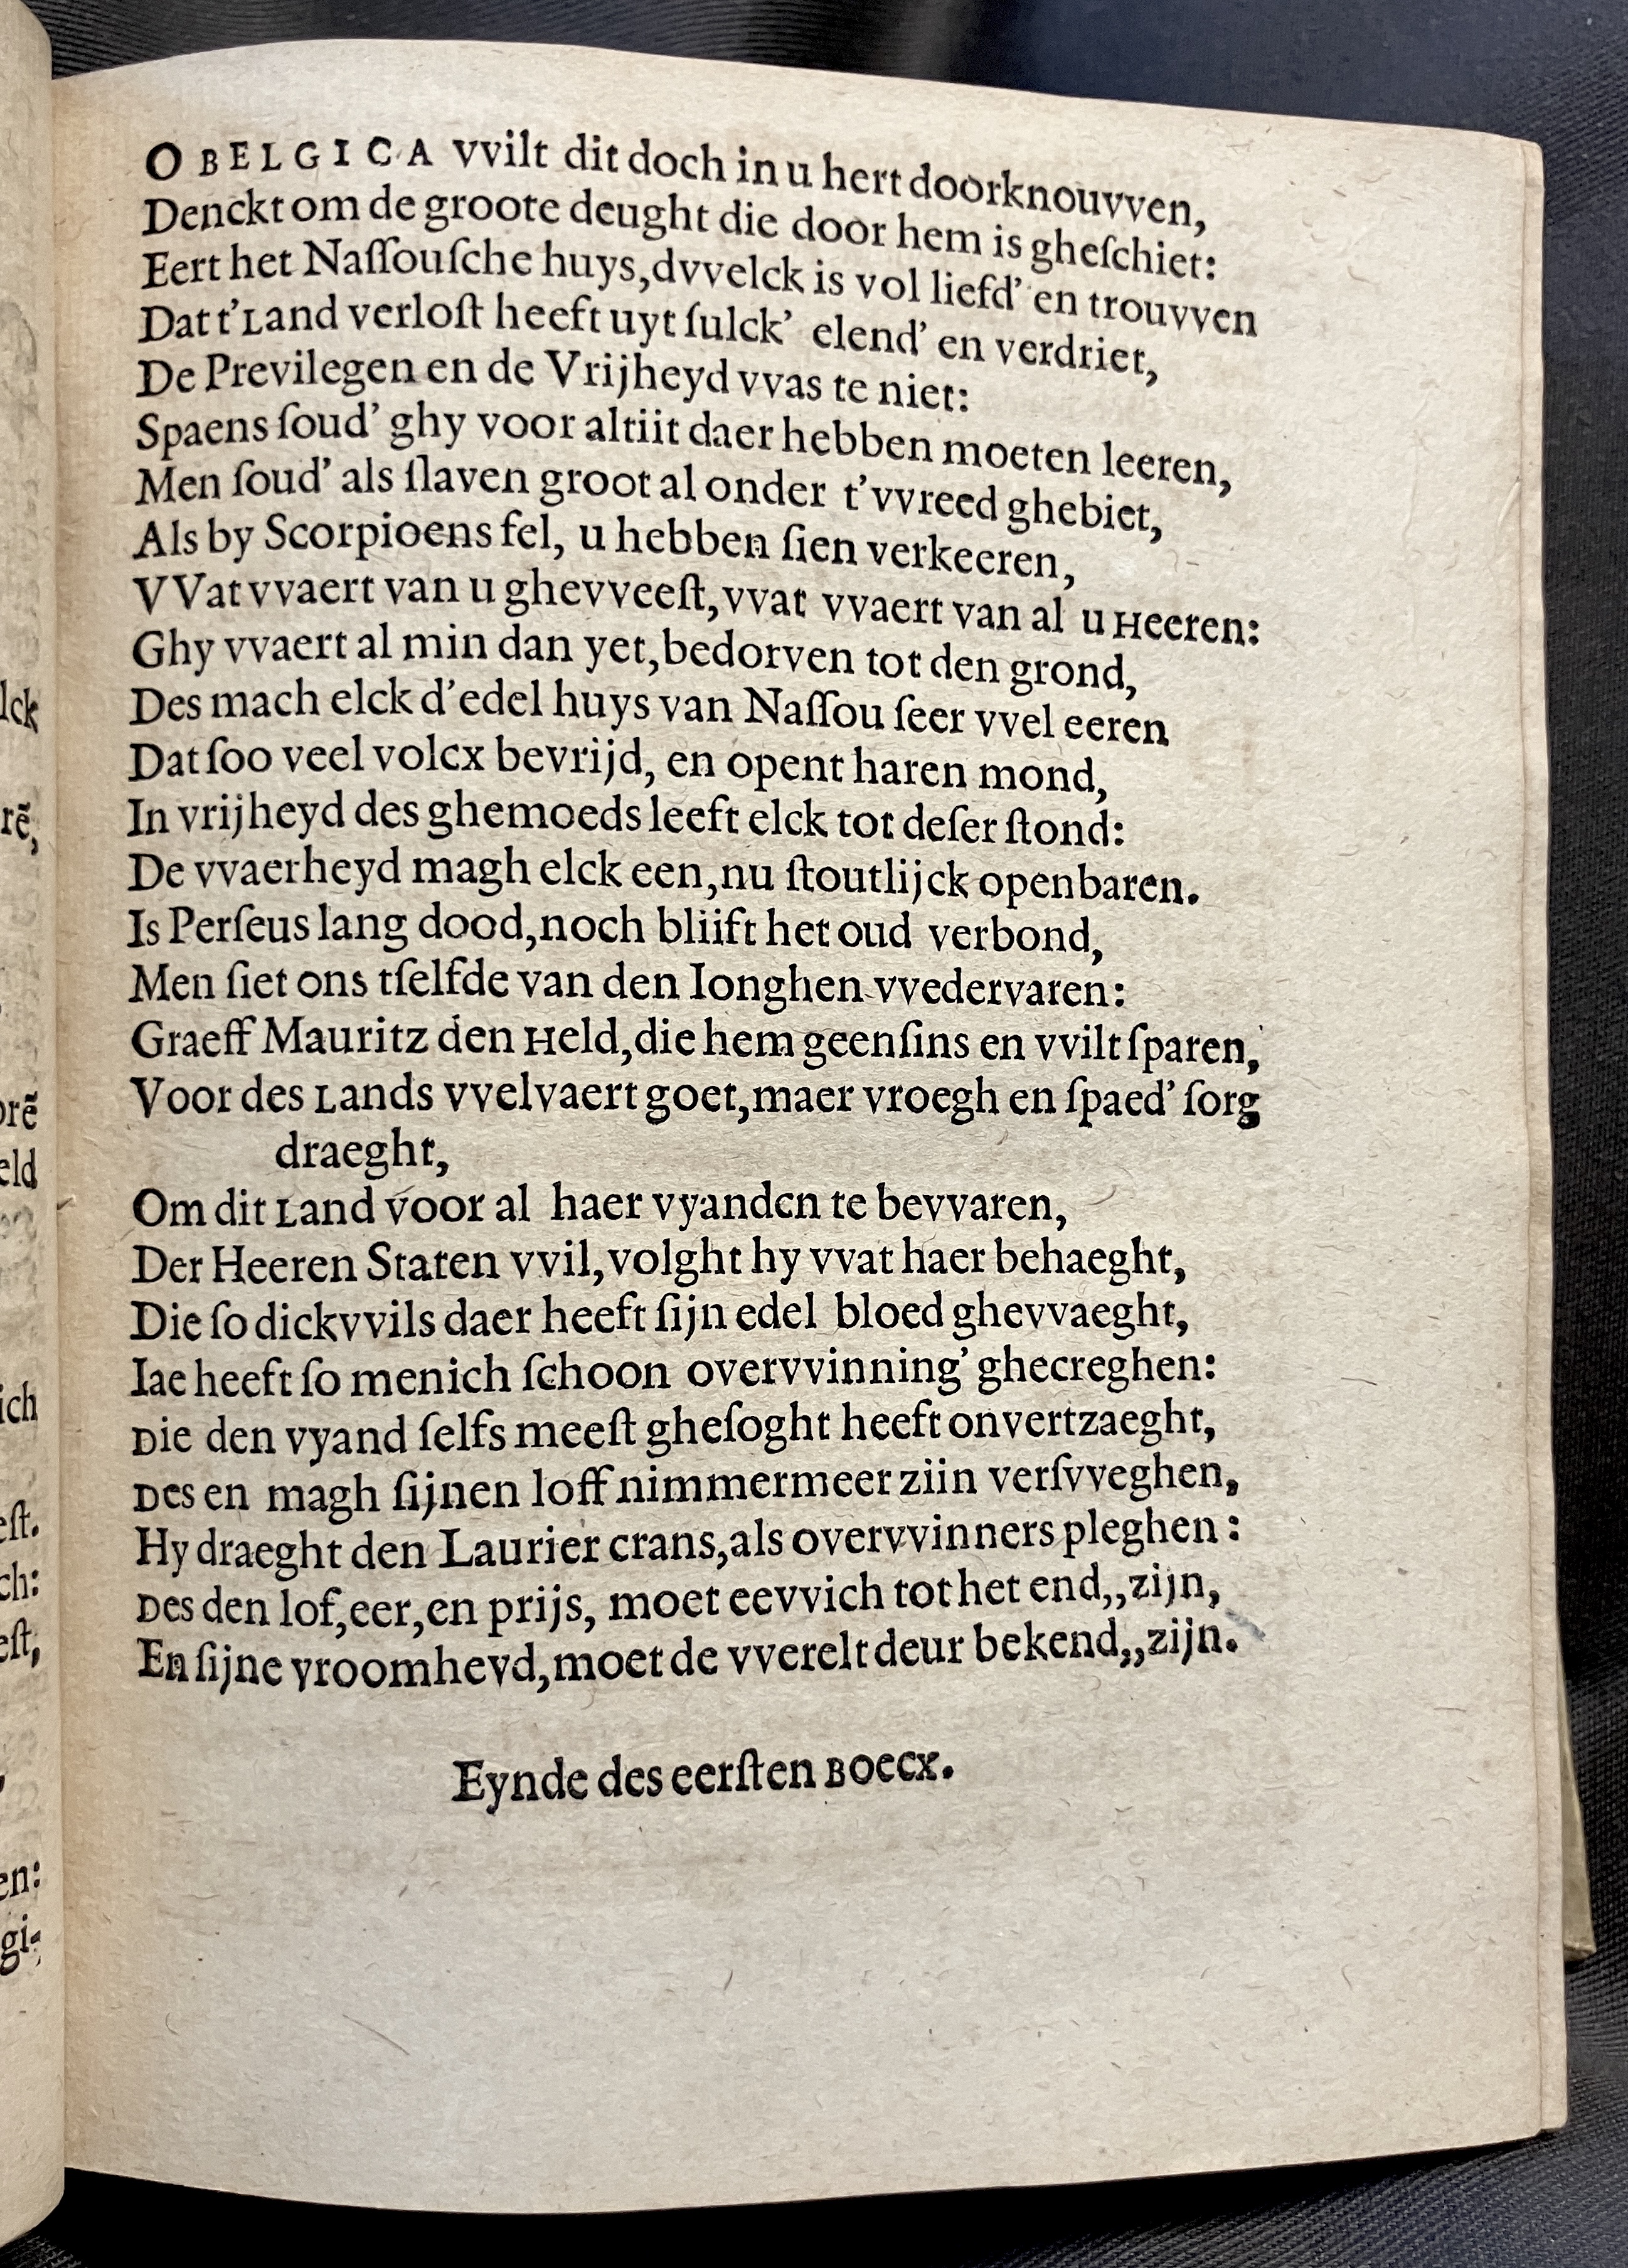 O BELGICA vvilt dit doch in u hert doorknouvven,
Denckt om de groote deught die door hem is gheſchiet:
Eert het Naſſouſche huys, dvvelck is vol liefd' en trouvven
Dat t'Land verloſt heeft uyt ſulck' elend' en verdriet,
De Previlegen en de Vrijheyd vvas te niet:
Spaens ſoud' ghy voor altiit daer hebben moeten leeren,
Men ſoud' als ſlaven groot al onder t'vvreed ghebiet,
Als by Scorpioens fel, u hebben ſien verkeeren,
VVat vvaert van u ghevveeſt, vvat vvaert van al u Heeren:
Ghy vvaert al min dan yet, bedorven tot den grond,
Des mach elck d'edel huys van Naſſou ſeer vvel eeren
Dat ſoo veel volcx bevrijd, en opent haren mond,
In vrijheyd des ghemoeds leeft elck tot deſer ſtond:
De vvaerheyd magh elck een, nu ſtoutlijck openbaren.
Is Perſeus lang dood, noch bliift het oud verbond,
Men ſiet ons tſelfde van den Ionghen vvedervaren:
Graeff Mauritz den Held, die hem geenſins en vvilt ſparen,
Voor des Lands vvelvaert goet, maer vroegh en ſpaed' ſorg
draeght,
Om dit Land voor al haer vyanden te bevvaren,
Der Heeren Staten vvil, volght hy vvat haer behaeght,
Die ſo dickvvils daer heeft ſijn edel bloed ghevvaeght,
Iae heeft ſo menich ſchoon overvvinning' ghecreghen:
Die den vyand ſelfs meeſt gheſoght heeft onvertzaeght,
Des en magh ſijnen loff nimmermeer ziin verſvveghen,
Hy draeght den Laurier crans, als overvvinners pleghen:
Des den lof, eer, en prijs, moet eevvich tot het end,, zijn,
En ſijne vroomheyd, moet de vverelt deur bekend,, zijn.
Eynde des eerſten Boecx.